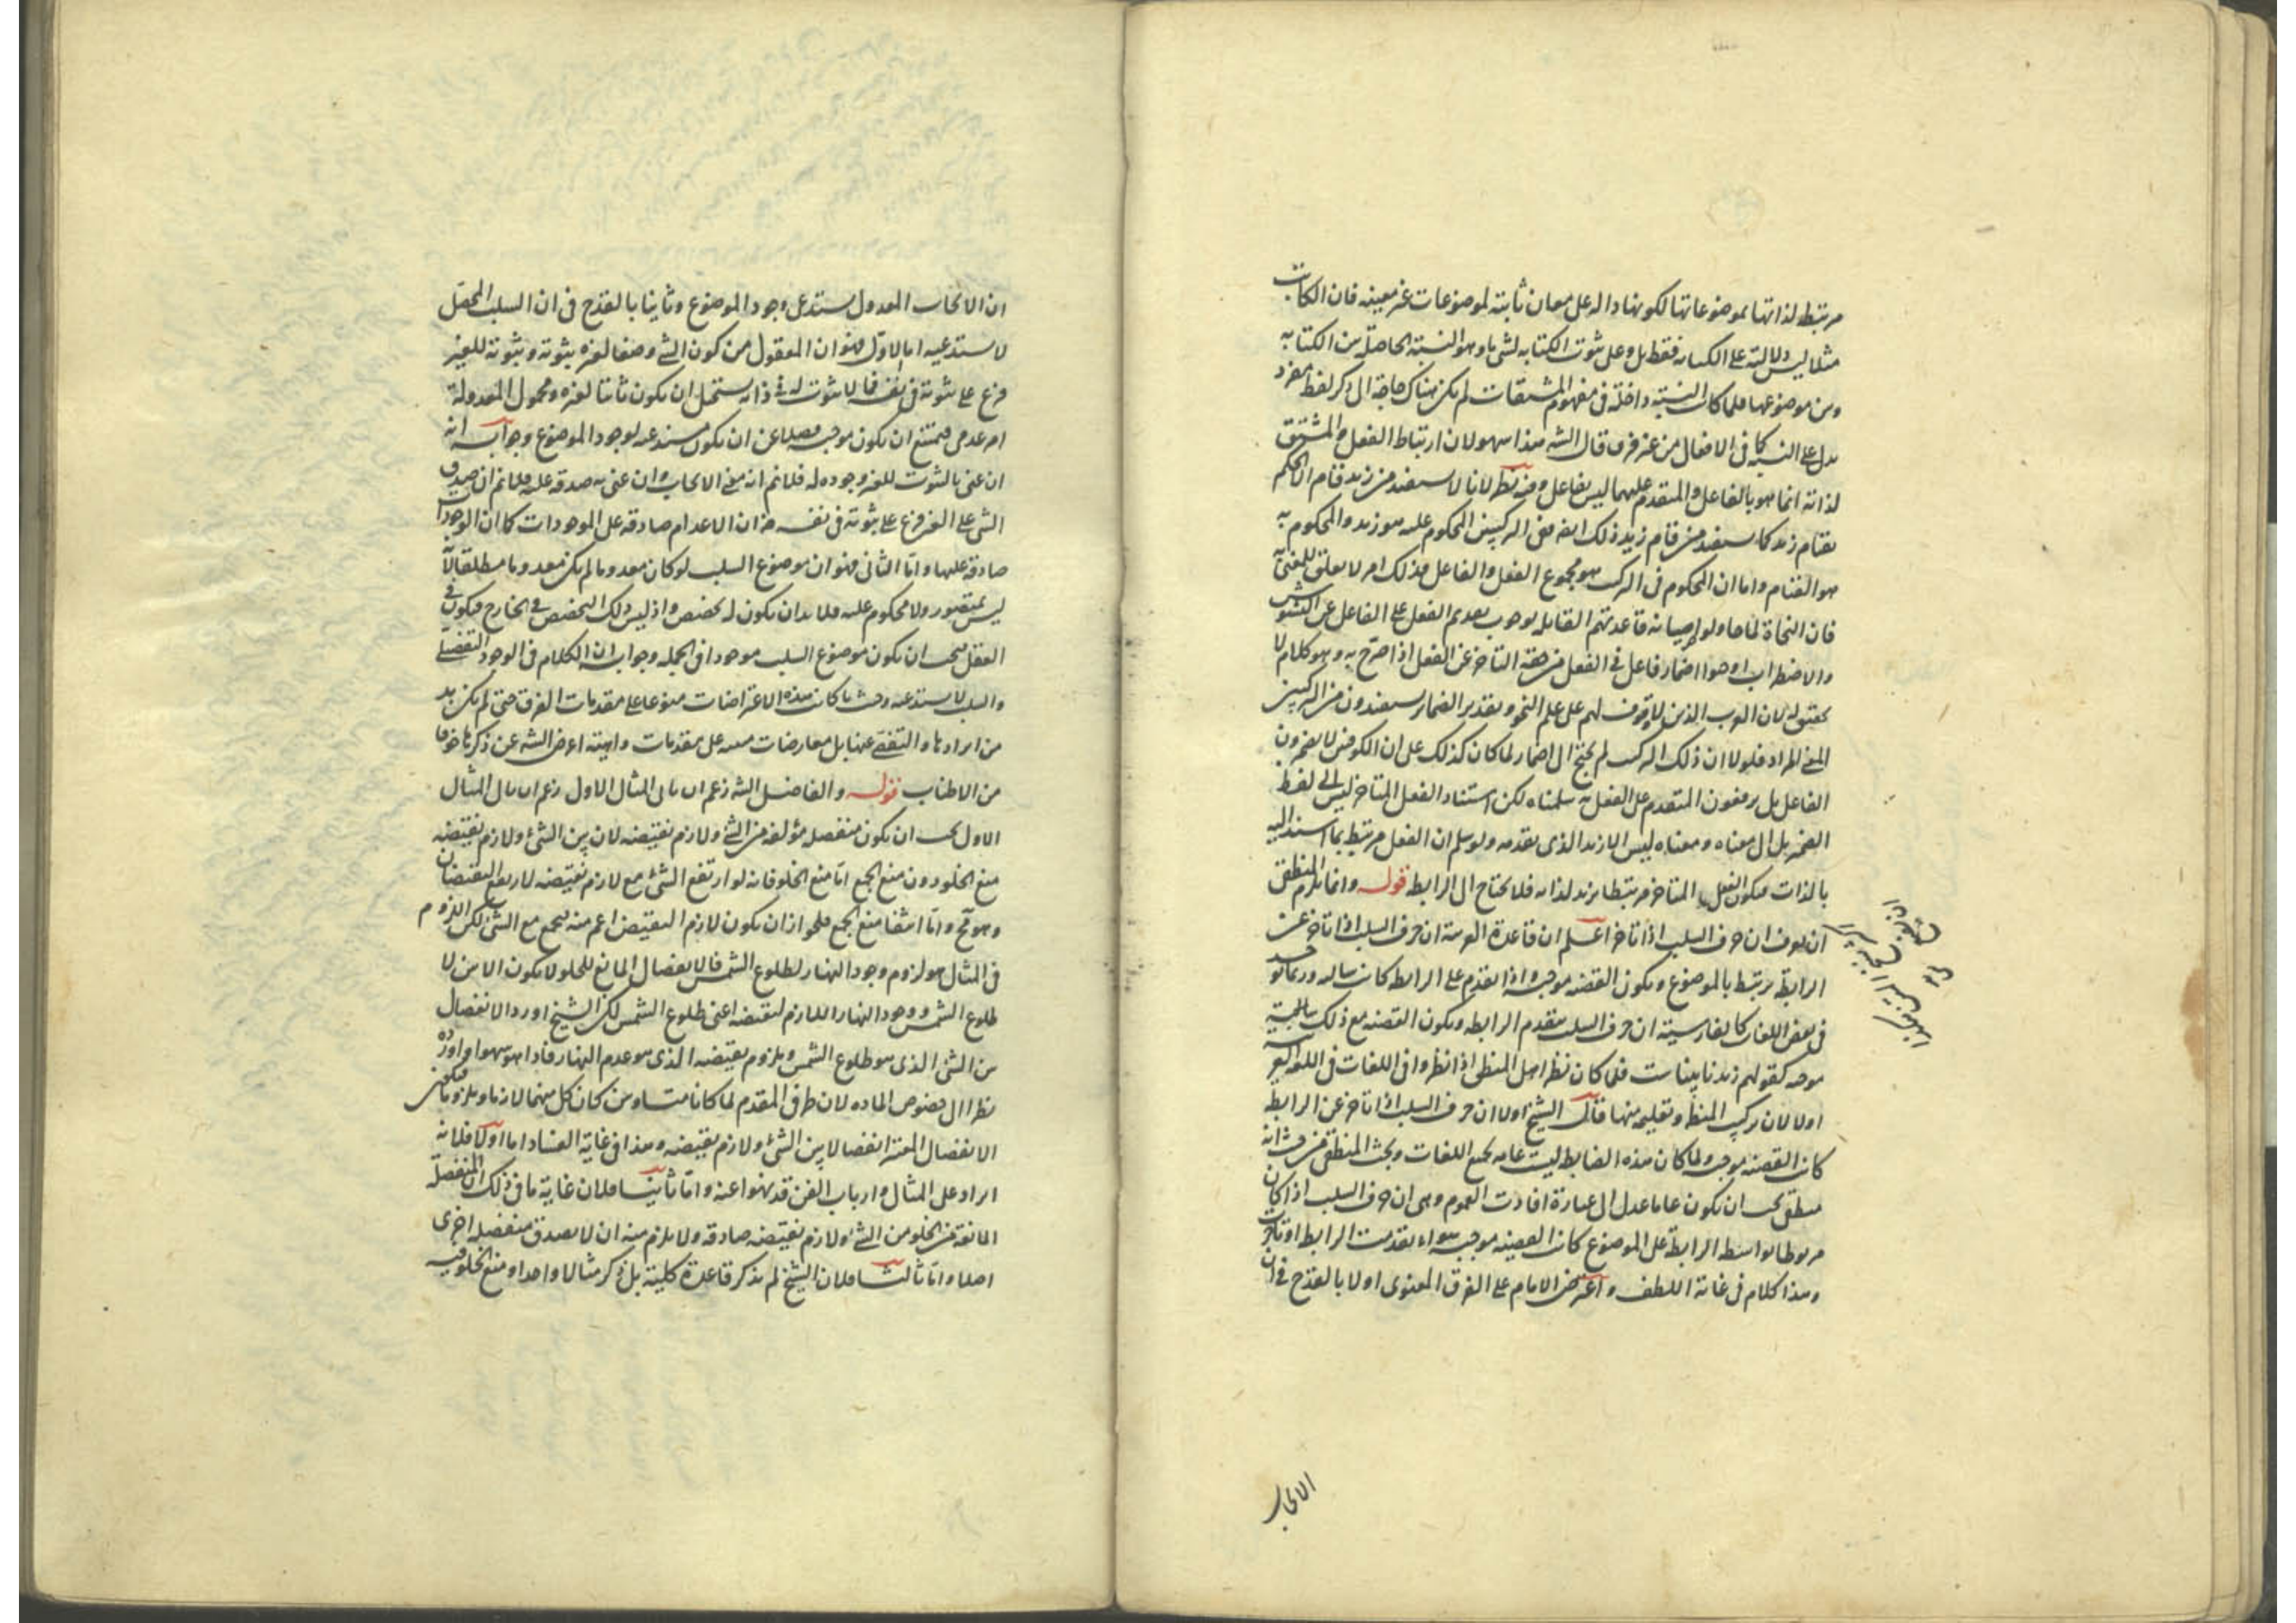 مرتبط لذاتها بموضوعاتها لكونها دالة على معان ثابتة لموضوعات غير معينه فان الكاتب
مثلا ليس دلالته على الكتابه فقط بل وعلى ثبوت الكتابه لشئ ما وهو النسبة الحاصلة بين الكتابه
وبين موضوعها فلما كانت النسبة داخلة فى مفهوم المشتقات لم يكن هناك حاجة الى ذكر لفظ مفرد
يدل على النسبة كما فى الافعال من غير فرق قال الشه هذا سهو لان ارتباط الفعل والمشتق
لذاته انما هو بالفاعل والمتقدم عليهما ليس بفاعل وفيه نظر لانا لا نستفيد من زيد قام الا الحكم
بقيام زيد كما نستفيد من قام زيد ذلك ايضا ففى التركيبين المحكوم عليه هو زيد والمحكوم به
هو القيام واما ان المحكوم فى التركيب هو مجموع الفعل والفاعل فذلك امر لا تعلق للمعنى به
فان النحاة لما حاولوا صيانة قاعدتهم القايلة بوجوب تقديم الفعل على الفاعل عن التشوش
والاضطراب اوجبوا اضمار فاعل فى الفعل من جهة التاخر عن الفعل اذا صرح به وهو كلام لا
تحقيق له لان العرب الذين لا وقوف لهم على علم النحو وتقدير الضماير يستفيدون من التركيبين
المعنى المراد فلولا ان ذلك التركيب لم يحتج الى اضمار لما كان كذلك على ان الكوفيين لا يضمرون
الفاعل بل يرفعون المتقدم على الفعل به سلمناه لكن استناد الفعل المتاخر ليس الى لفظ
الضمير بل الى معناه ومعناه ليس الا زيد الذى تقدمه ولو سلم ان الفعل مرتبط بما اسند اليه
بالذات فيكون الفعل المتاخر مرتبطا بزيد لذاته فلا يحتاج الى الرابطة قوله وانما يلزم المنطقى
ان يعرف ان حرف السلب اذا تاخر اعلم ان قاعدة العربية ان حرف السلب اذا تاخر عن
الرابطة يرتبط بالموضوع ويكون القضيه موجبه واذا تقدم على الرابطة كانت سالبه وربما يوجد
فى بعض اللغات كالفارسية ان حرف السلب متقدم الرابطه ويكون القضيه مع ذلك
موجبه كقولهم زيد نابيناست فلما كان نظر اهل المنطق اذا نظروا فى اللغات فى اللغة العربية
اولا لان تركيب المنطق وتعليمه منها قال الشيخ اولا ان حرف السلب اذا تاخر عن الرابطة
كانت القضيه موجبه ولما كان هذه الضابطة ليست عامة لجميع اللغات وبحث المنطقى من حيث انه
منطقى يجب ان يكون عاما عدل الى عبارة افادت العموم وهى ان حرف السلب اذا كان
مربوطا بواسطة الرابطة على الموضوع كانت القضيه موجبه سواء تقدمت الرابطة او تاخرت
وهذا كلام فى غاية اللطف واعترض الامام على الفرق المعنوى اولا بالقدح فى ان
الايجاب
ان الايجاب المعدول يستدعى وجود الموضوع وثانيا بالقدح فى ان السلب المحصل
لا يستدعيه اما الاول فهو ان المعقول من كون الشئ وصفا لغيره ثبوته وثبوته للغير
فرع على ثبوته فى نفسه فما لا ثبوت له فى ذاته يستحيل ان يكون ثابتا لغيره ومحمول المعدولة
امر عدمى فيمتنع ان يكون موجبه فضلا عن ان يكون مستدعيه لوجود الموضوع وجوابه انه
ان عنى بالثبوت للغير وجوده له فلانم انه معنى الايجاب وان عنى به صدقه عليه فلانم ان صدق
الشئ على الغير فرع على ثبوته فى نفسه فان الاعدام صادقة على الموجودات كما ان الوجودات
صادقة عليها واما الثانى فهو ان موضوع السلب لو كان معدوما لم يكن معدوما مطلقا لانه
ليس بمتصور ولا محكوم عليه فلا بد ان يكون له تخصص واذ ليس ذلك التخصص فى الخارج فيكون فى
العقل فيجب ان يكون موضوع السلب موجودا فى الجمله وجوابه ان الكلام فى الوجود التفصيلى
والسلب لا يستدعيه وحيث ما كانت هذه الاعتراضات منوعا على مقدمات الفرق حتى لم يكن بد
من ايرادها والتفصى عنها بل معارضات مبنية على مقدمات واهية اعرض الشه عن ذكرها خوفا
من الاطناب قوله والفاضل الشه زعم ان مال المثال الاول زعم ان مال المثال
الاول يجب ان يكون منفصله مؤلفه من الشئ ولازم نقيضه لان بين الشئ ولازم نقيضه
منع الخلو دون منع الجمع اما منع الخلو فانه لو ارتفع الشئ مع لازم نقيضه لارتفع النقيضان
وهو مح واما انتفا منع الجمع فلجواز ان يكون لازم النقيض اعم منه فيجمع مع الشئ لكن اللزوم
فى المثال هو لزوم وجود النهار لطلوع الشمس فالانفصال المانع للخلو لا يكون الا بين لا
طلوع الشمس ووجود النهار اللازم لنقيضه اعنى طلوع الشمس لكن الشيخ اورد الانفصال
بين الشئ الذى هو طلوع الشمس وملزوم نقيضه الذى هو عدم النهار فاذا هو سهو او اورده
نظرا الى خصوص المادة لان طرفى المقدم لما كانا متساويين كان كل منهما لازما وملزوما فيكون
الانفصال المعتبر انفصالا بين الشئ ولازم نقيضه وهذا فى غاية الفساد اما اولا فلانه
ايراد على المثال وارباب الفن قد نهوا عنه واما ثانيا فلان غاية ما فى ذلك ان المنفصلة
المانعة من الخلو من الشئ ولازم نقيضه صادقه ولا يلزم منه ان لا يصدق منفصله اخرى
اصلا واما ثالثا فلان الشيخ لم يذكر قاعدة كلية بل ذكر مثالا واحدا ومنع الخلو فيه